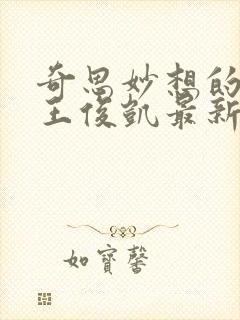 奇思妙想的
王俊凯最新
如寶馨